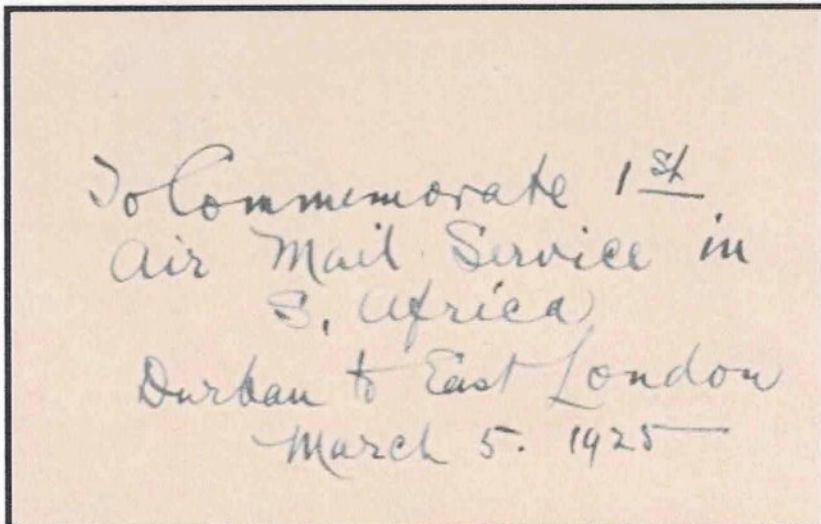 To Commemorate 1st
Air Mail Service in
S. Africa
Durban to East London
March 5. 1925